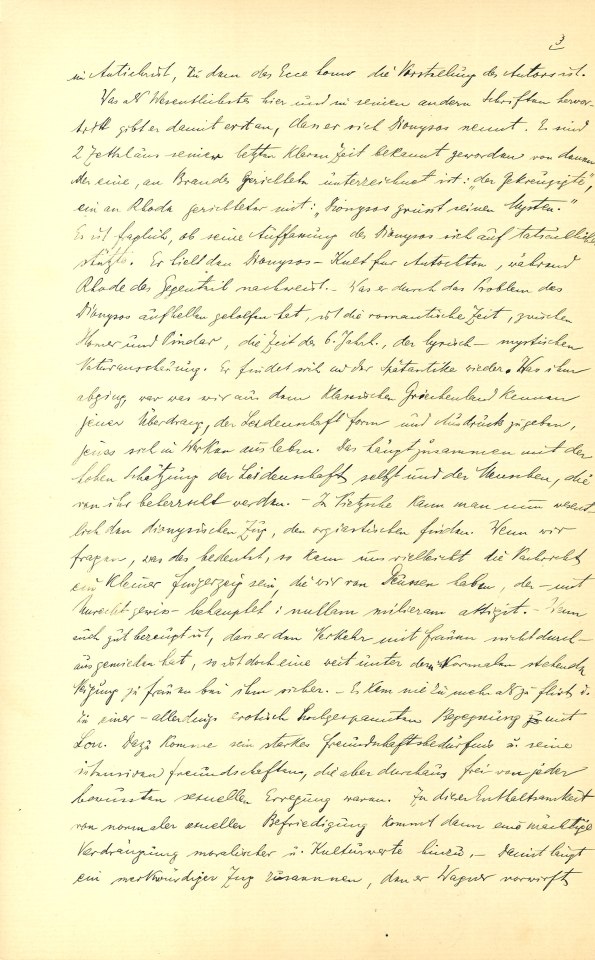 3
im Antichrist, zu dem das Ecce homo die Vorstellung des Autors ist.
Was als Wesentlichstes hier und in seinen andern Schriften hervor-
tritt gibt er damit erst an, dass er sich Dionysos nennt. Es sind
2 Zettel aus seiner letzten klaren Zeit bekannt geworden von denen
der eine, an Brandes gerichtete unterzeichnet ist: „der Gekreuzigte",
ein an Rhode gerichteter mit: „Dionysos grüsst seinen Mysten."
Es ist fraglich, ob seine Auffassung des Dionysos sich auf tatsächliches
stützte. Er hielt den Dionysos-Kult für Autochton, während
Rhode das Gegenteil nachweist. - Was er durch das Problem des
Dionysos aufhellen geholfen hat, ist die romantische Zeit, zwischen
Homer und Pindar, die Zeit des 6. Jahrh., der lyrisch-mystischen
Naturanschauung. Er findet sich in der Spätantike wieder. Was ihm
abging, war was wir aus dem klassischen Griechenland kennen
jener Überdrang, der Leidenschaft Form und Ausdruck zu geben,
jenes sich in Werken ausleben. Das hängt zusammen mit der
hohen Schätzung der Leidenschaft selbst und der Menschen, die
von ihr beherrscht werden. - In Nietzsche kann man nun wesent-
lich den dionysischen Zug, den orgiastischen finden. Wenn wir
fragen, was das bedeutet, so kann uns vielleicht die Nachricht
ein kleiner Fingerzeig sein, die wir von Deussen haben, der - mit
Unrecht gewiss - behauptet: nullam mulieram attigit. - Wenn
auch gut bezeugt ist, dass er den Verkehr mit Frauen nicht durch-
aus gemieden hat, so ist doch eine weit unter dem Normalen stehende
Neigung zu Frauen bei ihm sicher. - Es kam nie zu mehr als zu flirts u.
zu einer - allerdings erotisch hochgespannten Begegnung mit
Lou. Dazu komme sein starkes Freundschaftsbedürfnis u. seine
intensiven Freundschaften, die aber durchaus frei von jeder
bewussten sexuellen Erregung waren. Zu dieser Enthaltsamkeit
von normaler sexueller Befriedigung kommt dann eine mächtige
Verdrängung moralischer u. Kulturwerte hinzu. - Damit hängt
ein merkwürdiger Zug zusammen, den er Wagner vorwirft